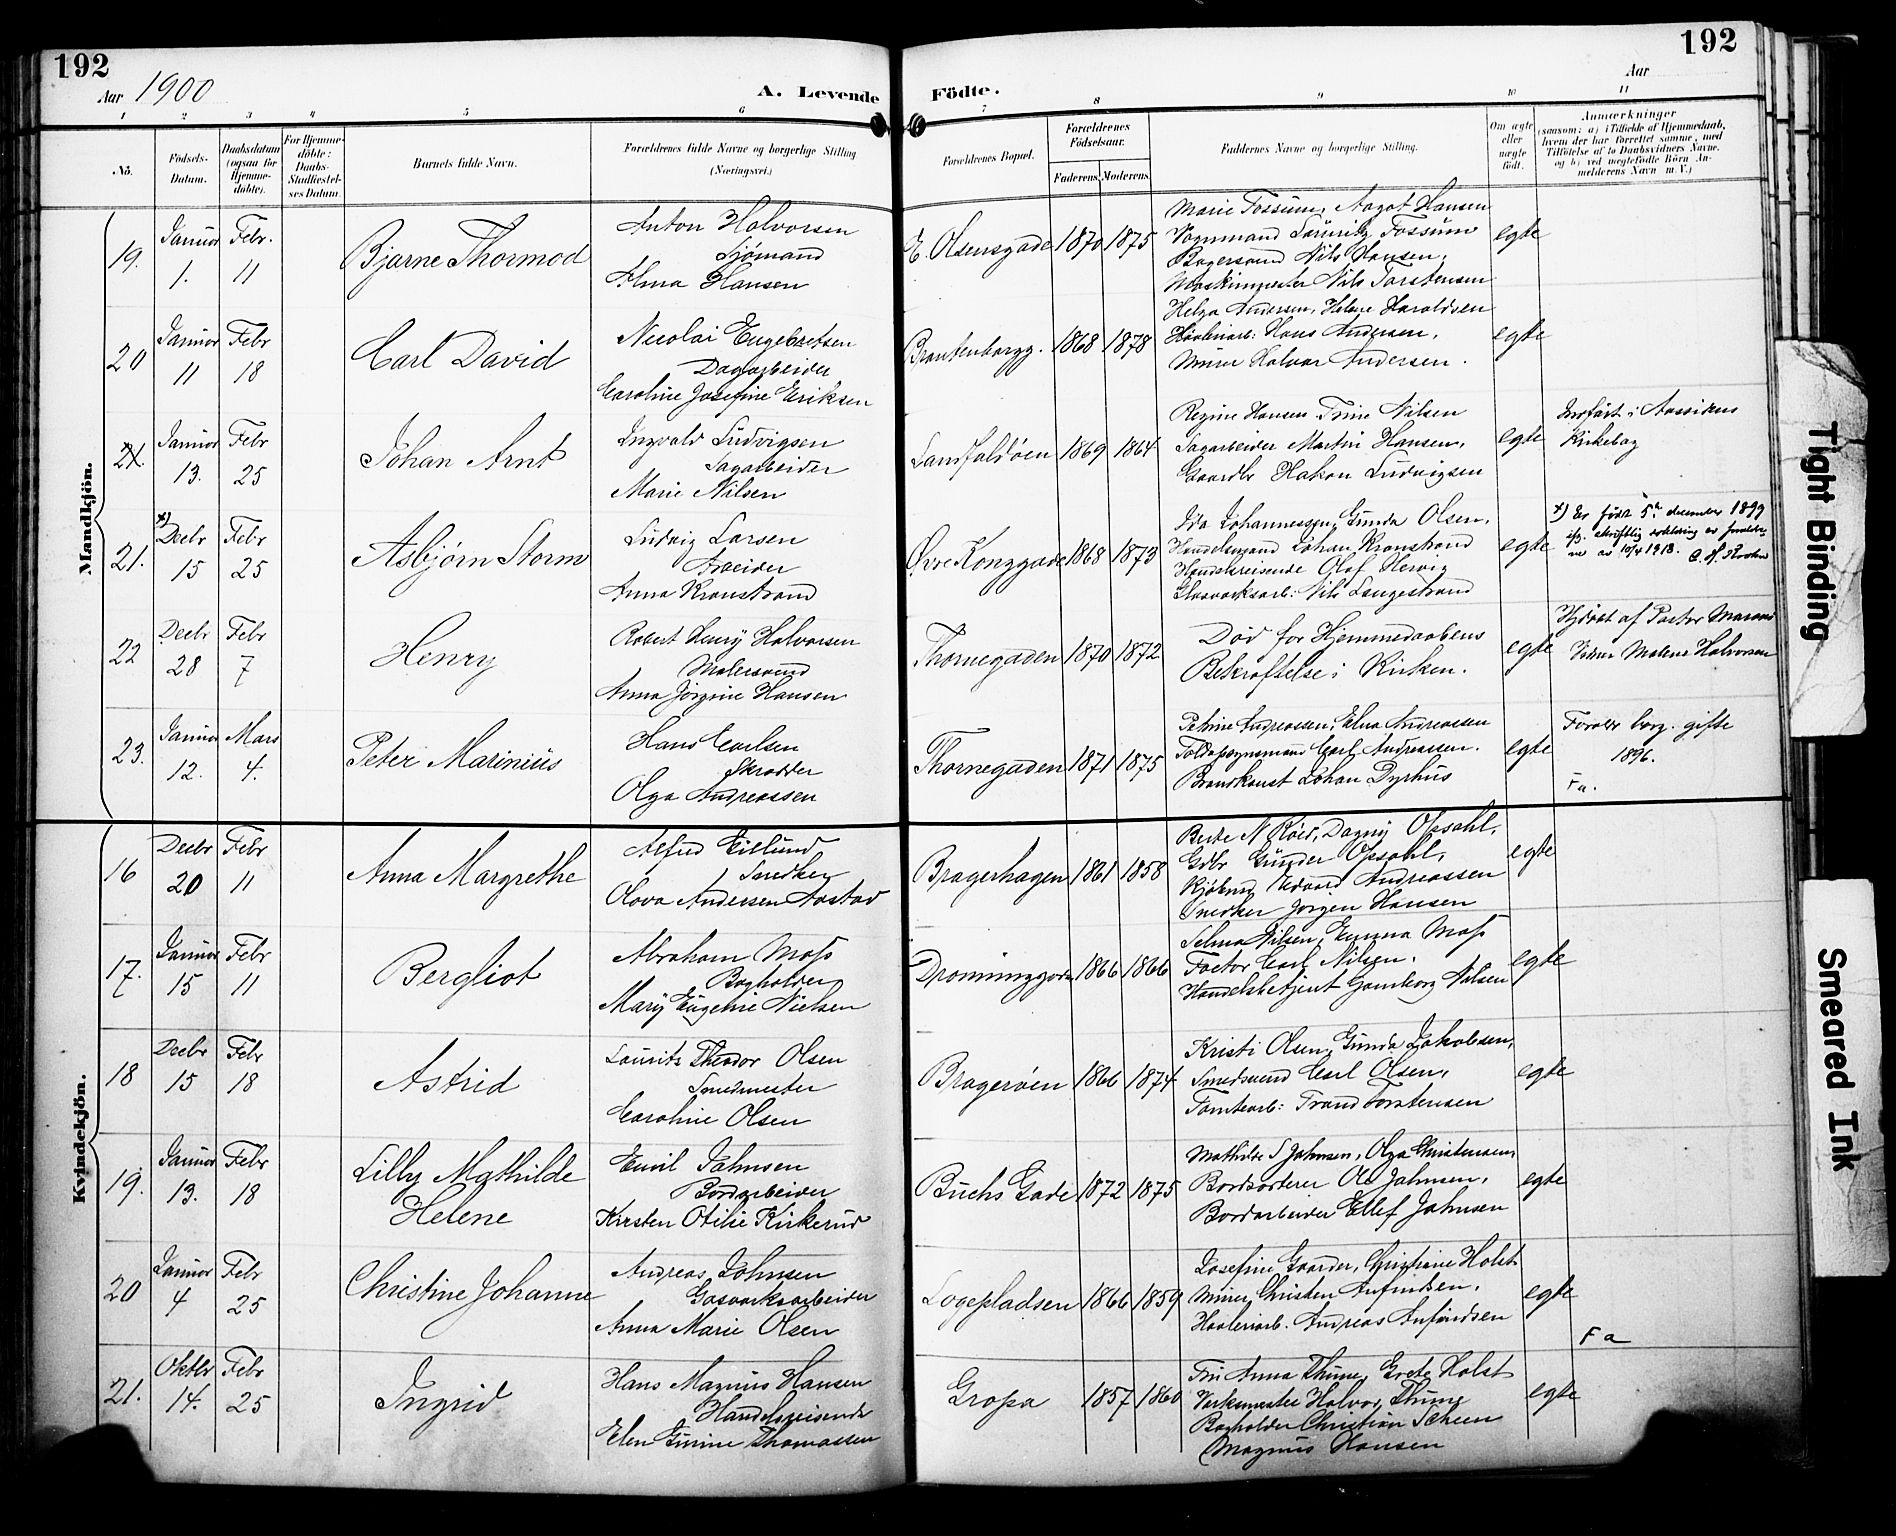 192
Aar 1900
A. Levende
Födte.
192
Aar
1 2 3 4 5 6 7 8 9 10 11
No.
Födsels-Datum.
Daabsdatum (ogsaa for Hjemme-döbte).
For Hjemme-döbte: Daabs-Stadfæstel-ses Datum.
Barnets fulde Navn.
Forældrenes fulde Navne og borgerlige Stilling (Næringsvei.)
Forældrenes Bopæl.
Forældrenes Födselsaar.
Faderens. Moderens.
Faddernes Navne og borgerlige Stilling.
Om ægte eller uægte födt.
Anmærkninger
(saasom: a) i Tilfælde af Hjemmedaab, hvem der har forrettet samme, med Tilföielse af to Daabsvidners Navne. og b) ved uægtefödte Börn An-melderens Navn m. V.)
Mandkjön.
19. Januar 1. Febr. 11 Bjarne Thormod
Anton Halvorsen
Sjømand
Alma Hansen
E. Olsensgade 1870 1875
Marie Fossum, Aagot Hansen
Vognmand Lauritz Fossum
Bagersvend Nils Hansen,
Maskinmester Nils Torstensen
egte
20 Januar 11 Febr 18 Carl David
Nicolai Engebretsen
Dagarbeider
Caroline Josefine Eriksen
Brantenborgg. 1868 1878
Helga Andersen, Helene Haraldsen
Høvleriarb: Hans Andersen,
Murer Halvor Andersen.
egte
21. Januar 13. Febr 25 Johan Arnt
Ingvald Ludvigsen
Sagarbeider
Marie Nilsen
Landfaldøen 1869 1864
Regine Hansen Trine Nilsen
Sagarbeider Martin Hansen,
Gaardbr Hakon Ludvigsen
egte
Indført i Aassidens
Kirkebog
21. x) Decbr 15 Febr 25 Asbjørn Storm
Ludvig Larsen
Arbeider
Anna Kronstrand
Øvre Konggade 1868 1873
Ida Johannessen, Gunda Olsen,
Handelsmand Johan Kronstrand
Handelsreisende Olaf Herwig
Glasværksarb: Nils Langestrand
egte
x) Er født 5te december 1899
ifl. skriftlig erklæring av foreldre-
ne av 10/4 1918.
22 Decbr 28 Febr 7 Henry
Robert Henry Halvorsen
Malersvend
Anna Jørgine Hansen
Thornegaden 1870 1872
Død før Hjemmedaabens
Bekræftelse i Kirken.
egte
Hjdøbt af Pastor
Malene Halvorsen
23. Januar 12. Mars 4. Peter Marinius
Hans Carlsen
Skrædder
Olga Andreassen
Thornegaden 1871 1875
Petrine Andreassen, Elna Andreassen
Toldopsynsmand Carl Andreassen.
Brandkonst Johan Dyrhus
egte
Foræld. borg. gifte
1896.
Fa.
Kvindekjön.
16 Decbr 20 Febr 11 Anna Margrethe
Alfred Eislund
Snedker
Olava Andersen Aastad
Bragerhagen 1861 1858
Berte N Røed, Dagny Opsahl,
Gdbr Gunder Opsahl,
Kjøbmd Edvard Andreassen
Snedker Jørgen Hansen
egte
17. Januar 15 Febr 11 Bergliot
Abraham Moss
Bogholder
Mary Eugenie Nielsen
Dronninggaden 1866 1866
Selma Nilsen, Emma Moss
Factor Carl Nilsen,
Handelsbetjent Gamborg Nilsen
egte
18 Decbr 15 Febr 18 Astrid
Laurits Theodor Olsen
Smedmester
Caroline Olsen
Bragerøen 1866 1874
Kristi Olsen, Gunda Jakobsen,
Smedsvend Carl Olsen,
Tomtearb: Trand Torstensen
egte
19. Januar 13. Febr 18 Lilly Mathilde
Helene
Emil Jahnsen
Bordarbeider
Kirsten Otilie Kirkerud
Buchs Gade 1872 1875
Mathilde S Jahnsen, Olga Christensen
Bordsorterer Ole Jahnsen,
Bordarbeider Ellef Jahnsen
egte
20 Januar 4 Febr 25 Christine Johanne
Andreas Johnsen
Gasværksarbeider
Anna Marie Olsen
Logepladsen 1866 1859
Josefine Gaarder, Christiane Holst
Murer Christen Anfindsen,
Høvleriarb. Andreas Anfindsen
egte
Fa
21. Oktbr 14. Febr 25 Ingrid
Hans Magnus Hansen
Handelsreisende
Elen Gurine Thomassen
Gropa 1857 1860
Fru Anna Thune, Grete Holst
Værksmester Halvor Thune
Bogholder Christian Scheen
Magnus Hansen
egte
Tight Binding
Smeared Ink